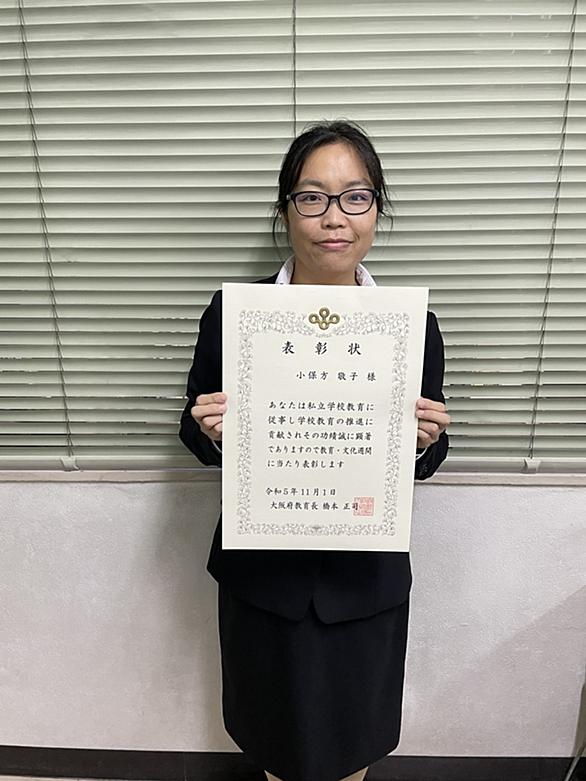 表彰状
小保方 敬子 様
あなたは私立学校教育に
従事し学校教育の推進に
貢献されその功績誠に顕著
でありますので教育・文化週間
に当たり表彰します
令和5年11月1日
大阪府教育長 橋本 正司